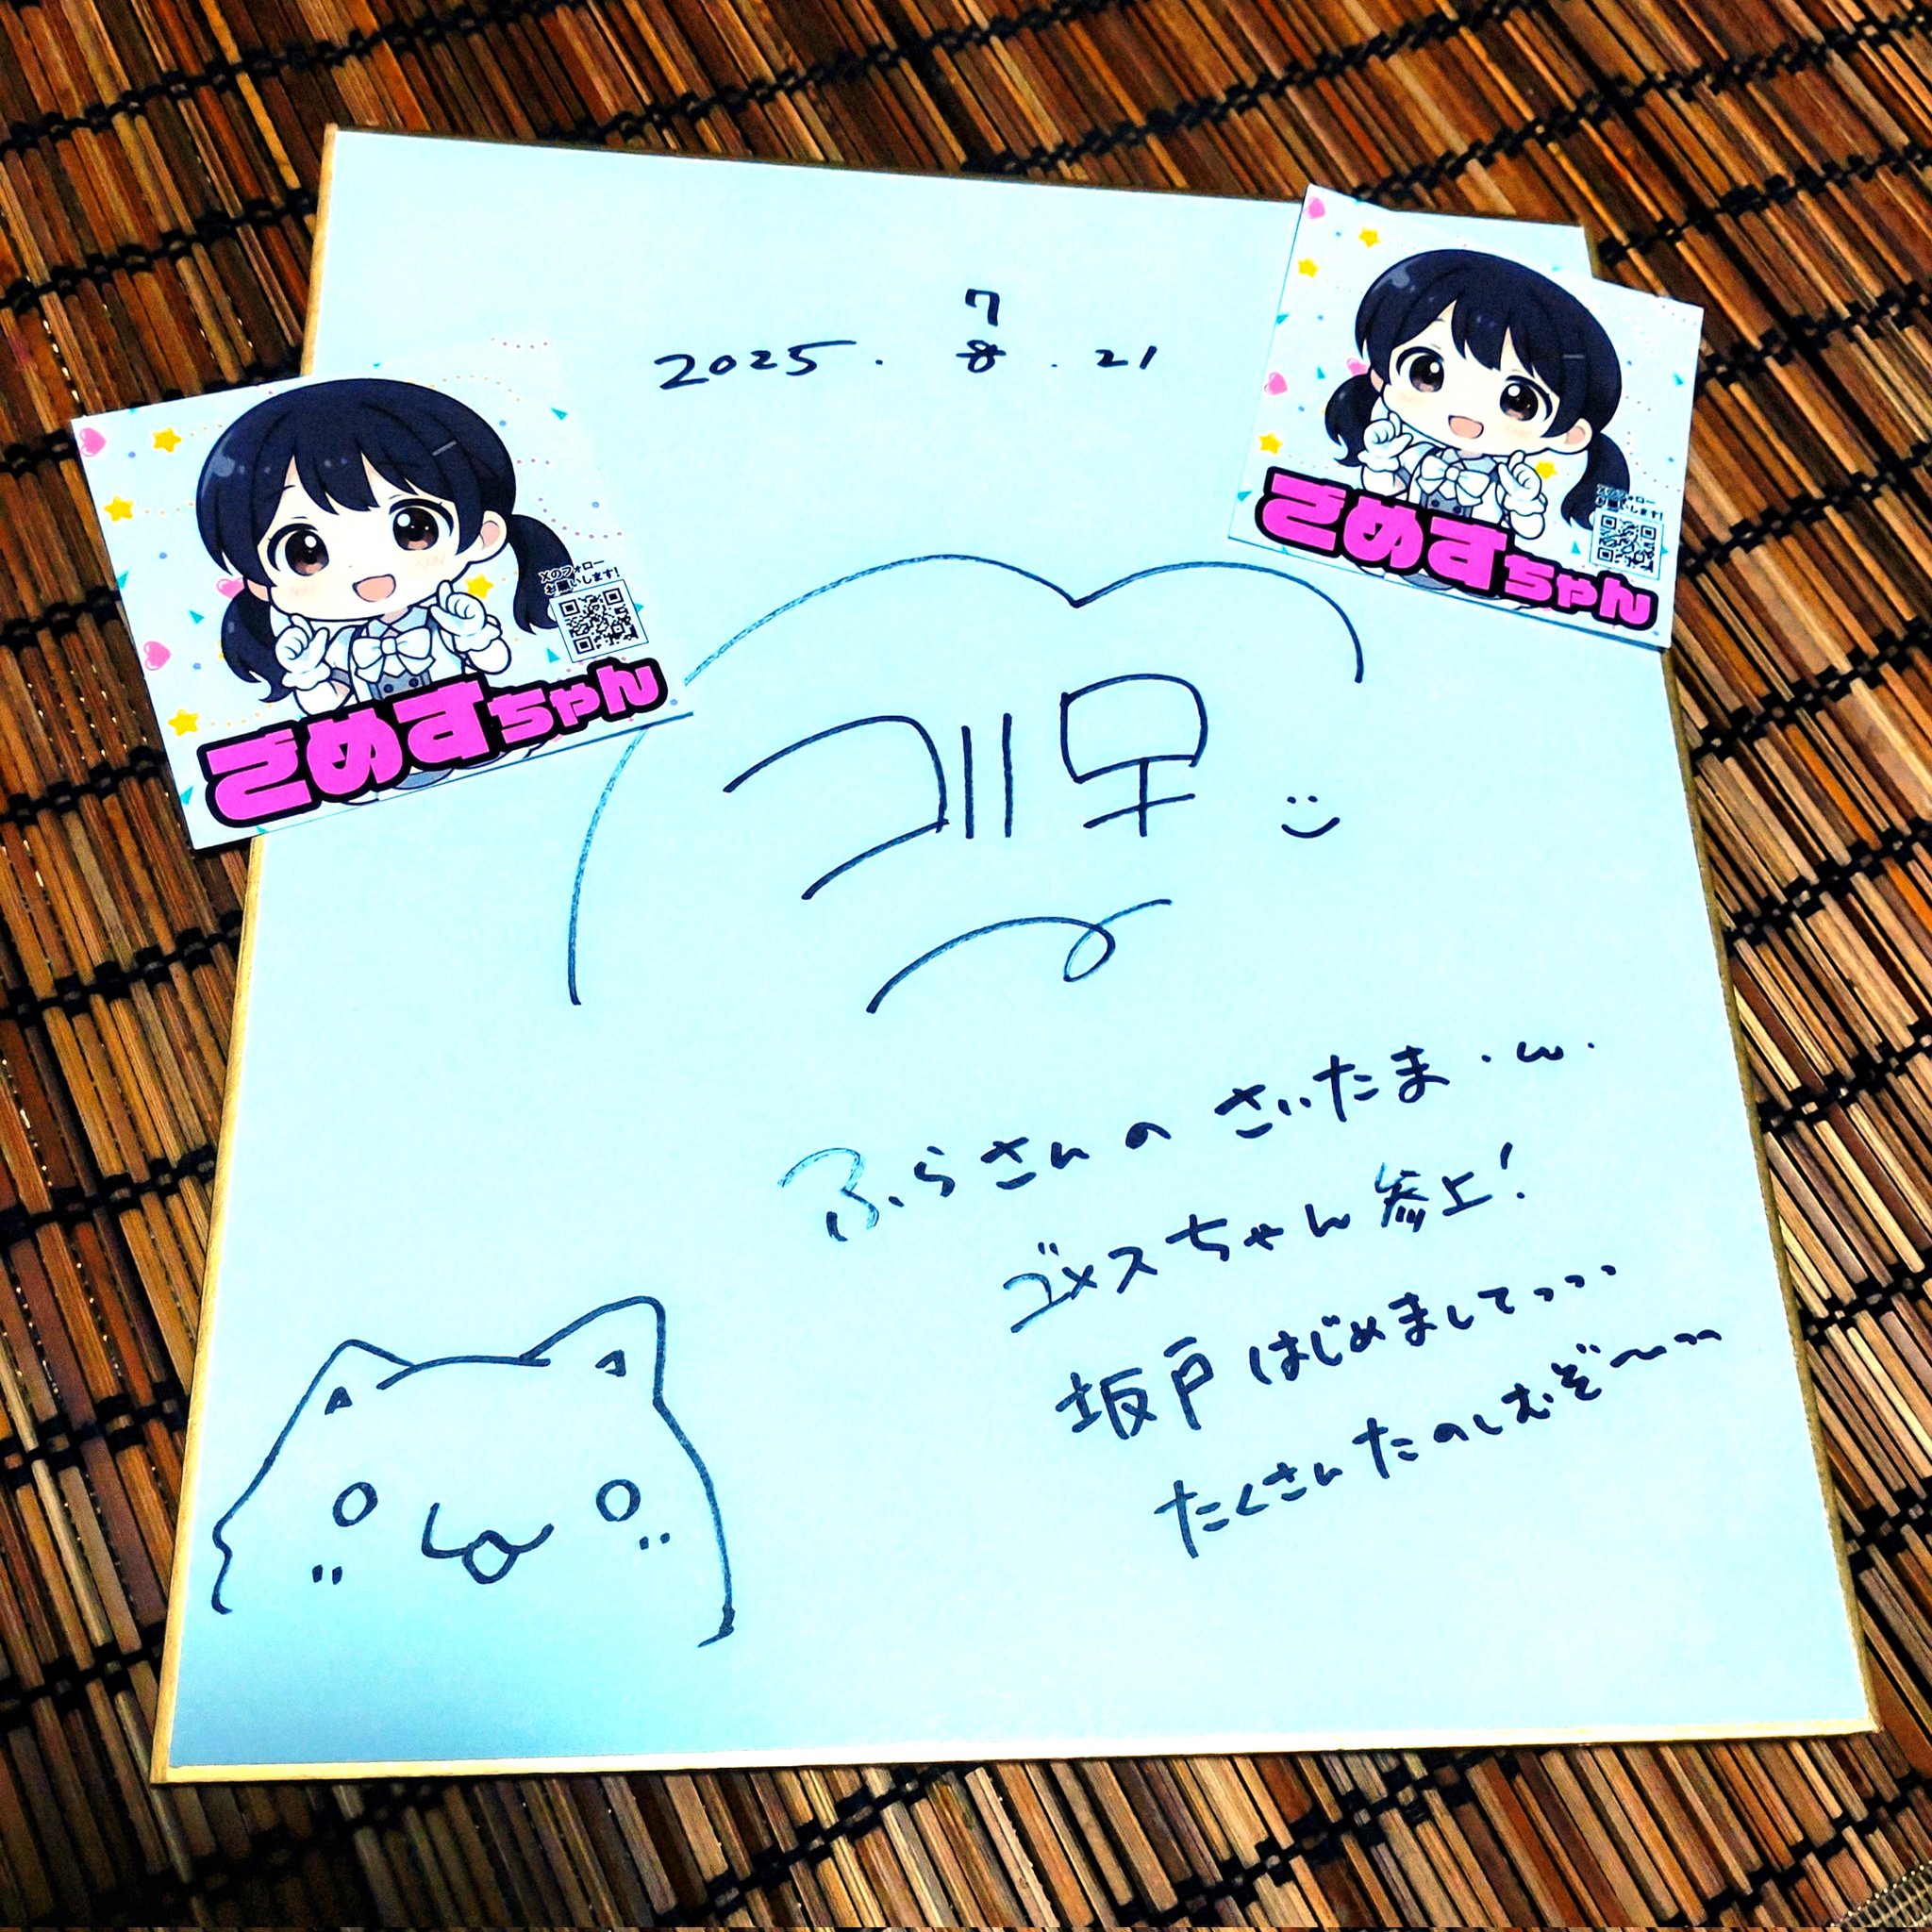 2025. 7 8 .21
Xのフォロー
お願いします!
ごめすちゃん
Xのフォロー
お願いします!
ごめすちゃん
ふらさんの さいたま・ω・
ゴメスちゃん参上!
坂戸はじめましてっっっ
たくさんたのしむぞ〜っっ